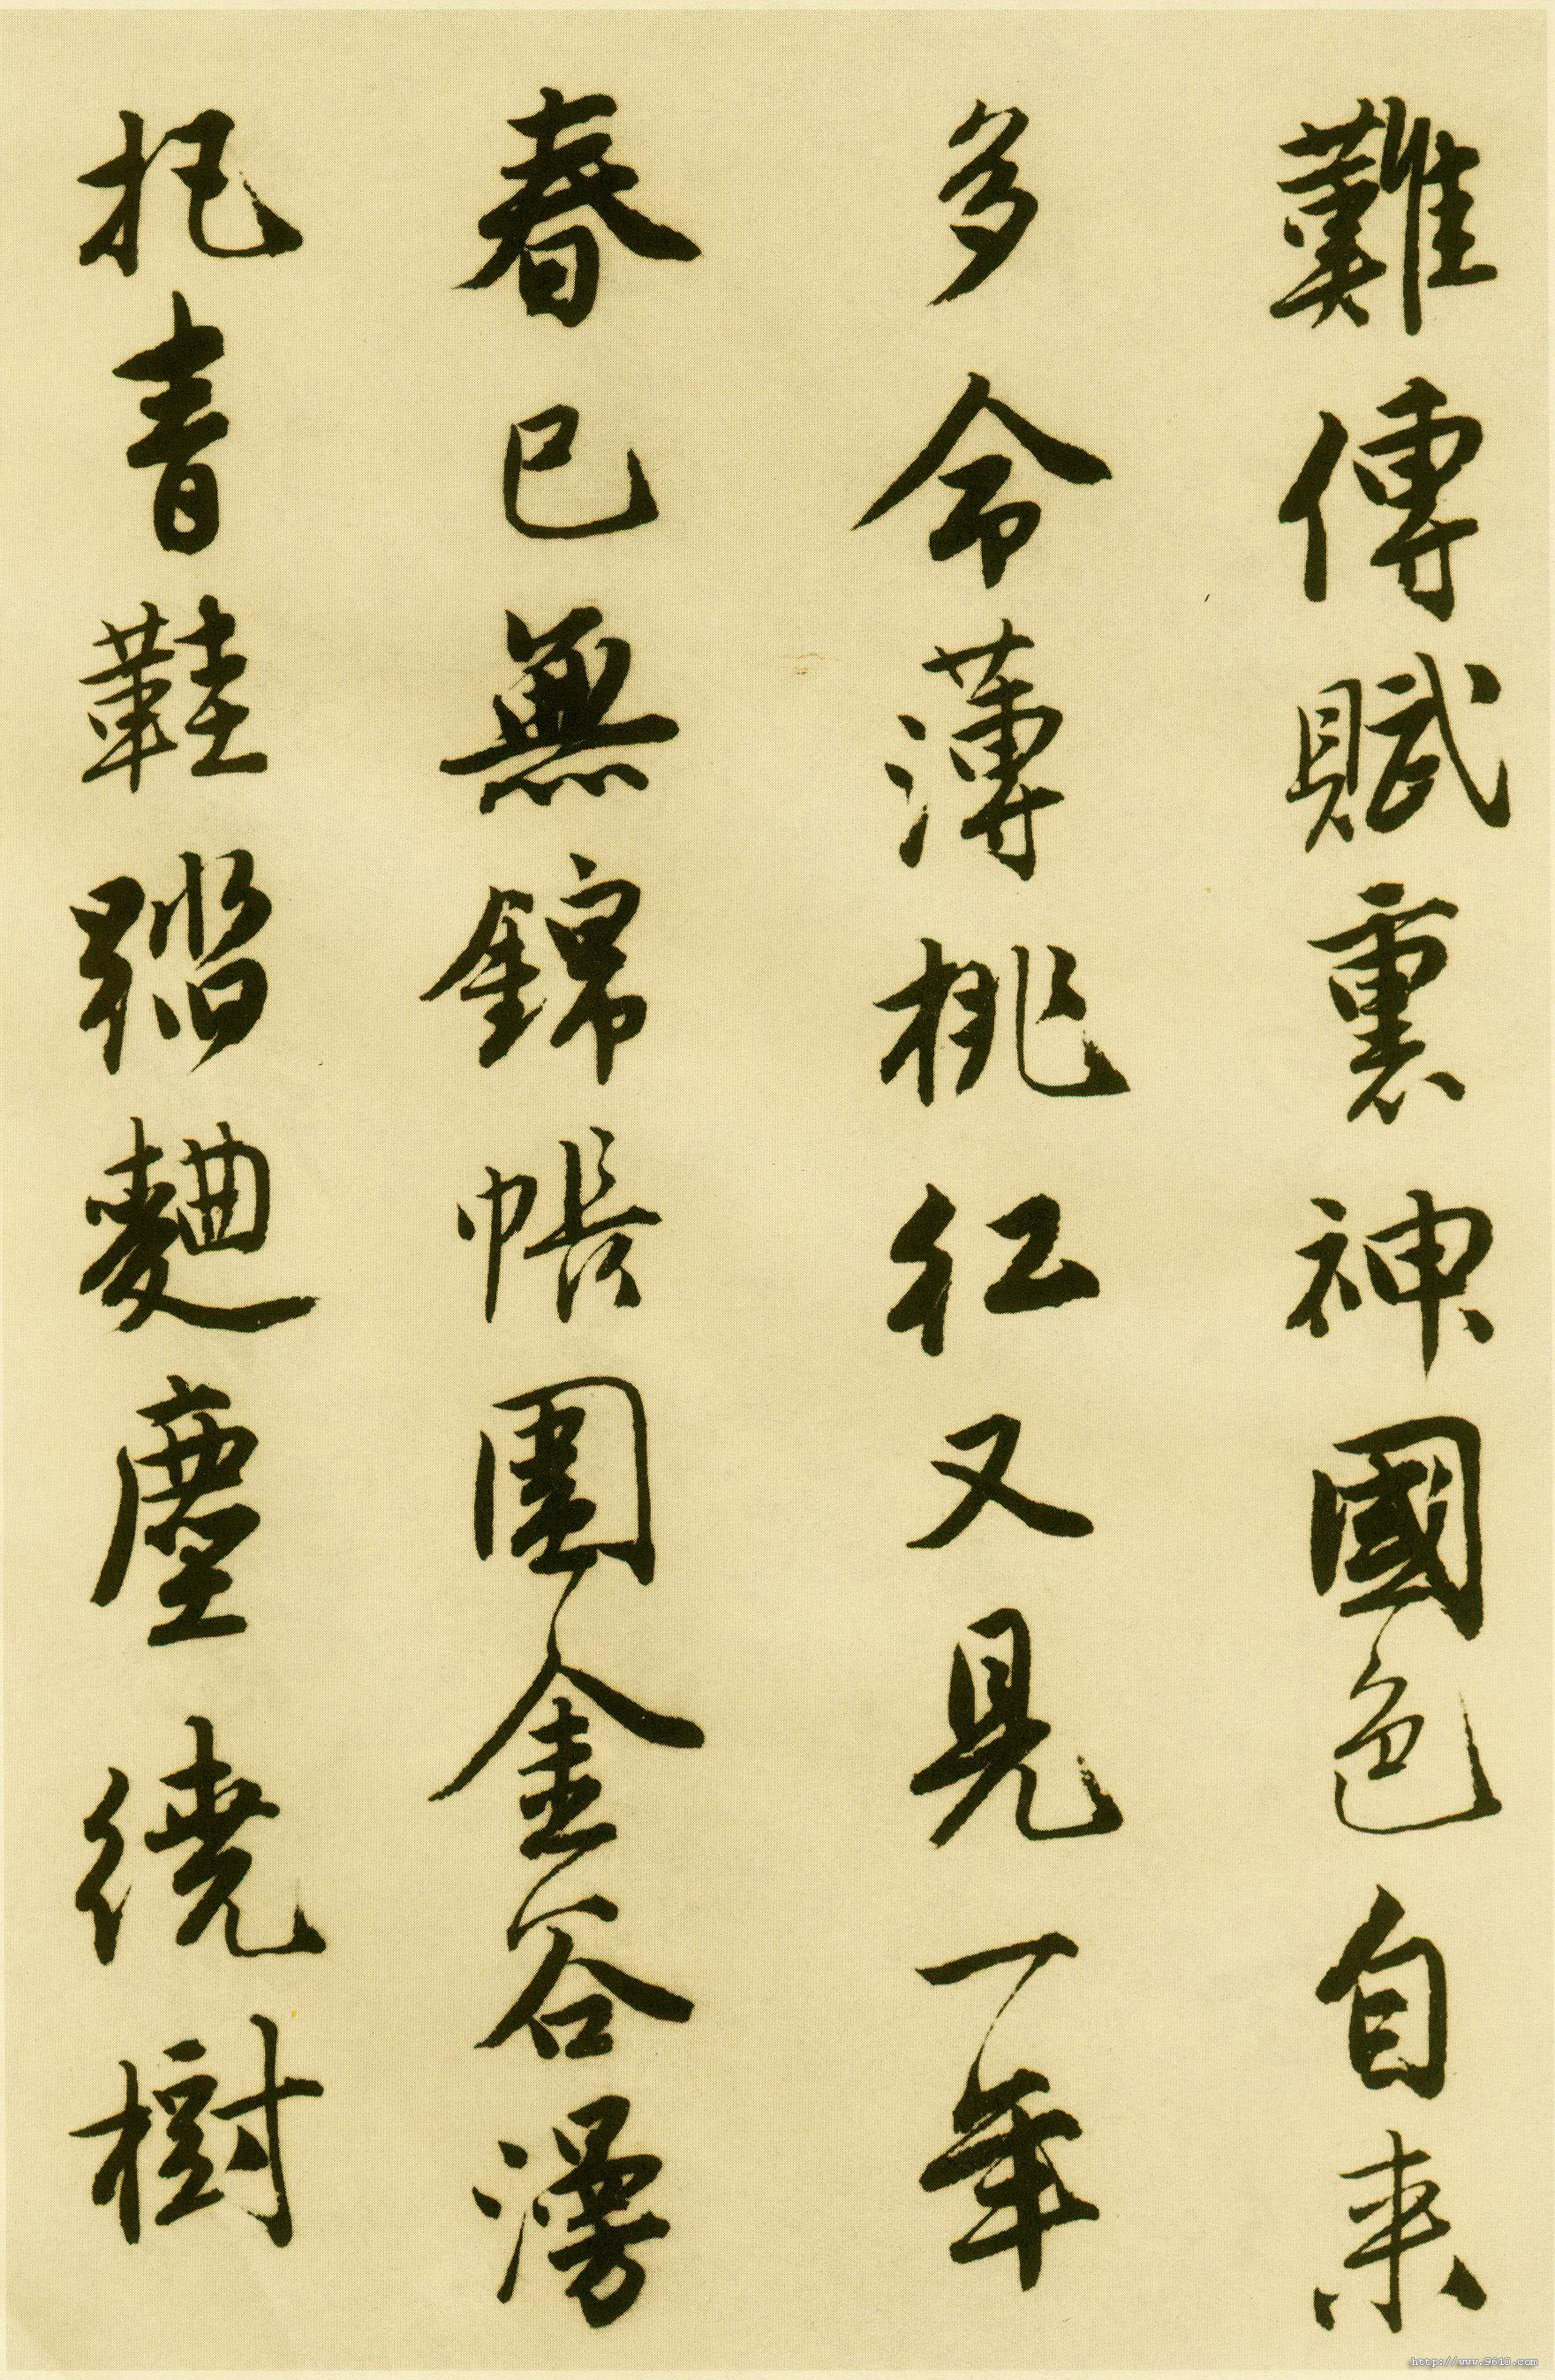 難傳賦裏神國色自来
多命薄桃紅又見一年
春已無錦帳圍金谷漫
把青鞋踏麯塵繞樹
http://www.9610.com